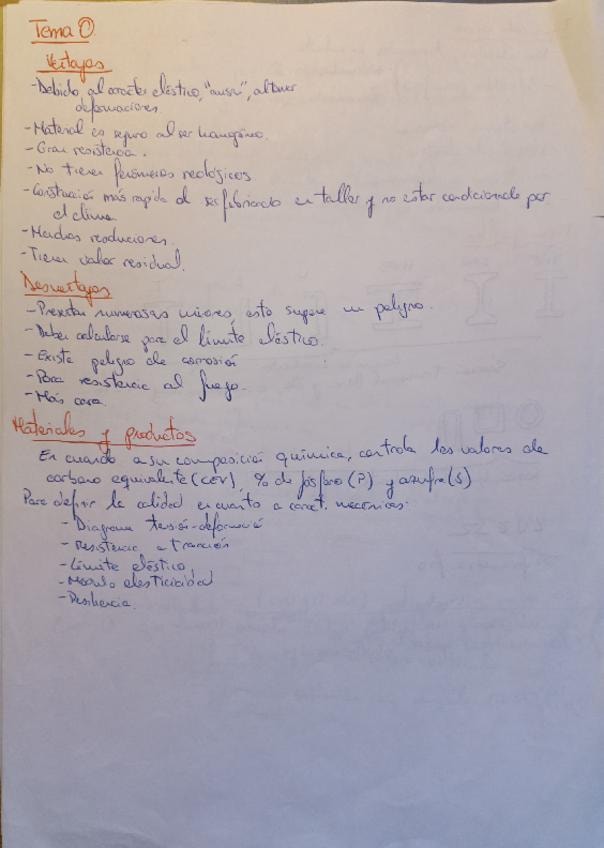 Tema 0.
Ventajas
-Debido al carácter elástico, "avisa", al tener
deformaciones.
-Material es seguro al ser homogéneo.
-Gran resistencia.
-No tienen fenómenos reológicos
-Construcción más rapida al ser fabricado en taller y no estar condicionado por
el clima
-Tienen valor residual.
Desventajas
-Presentan numerosas uniones, esto supone un peligro.
-Deben calcularse para el límite elástico.
-Existe peligro de corrosión
-Poca resistencia al fuego.
-Más cara.
Materiales y productos
En cuando a su composición química, controla los valores de
carbono equivalente (CEV), % de fósforo (P) y azufre (S)
Para definir la calidad en cuanto a caract. mecánicas:
-Diagrama tensión-deformació
-Resistencia a tracción
-Límite elástico,
-Modulo elasticidad
-Resiliencia.